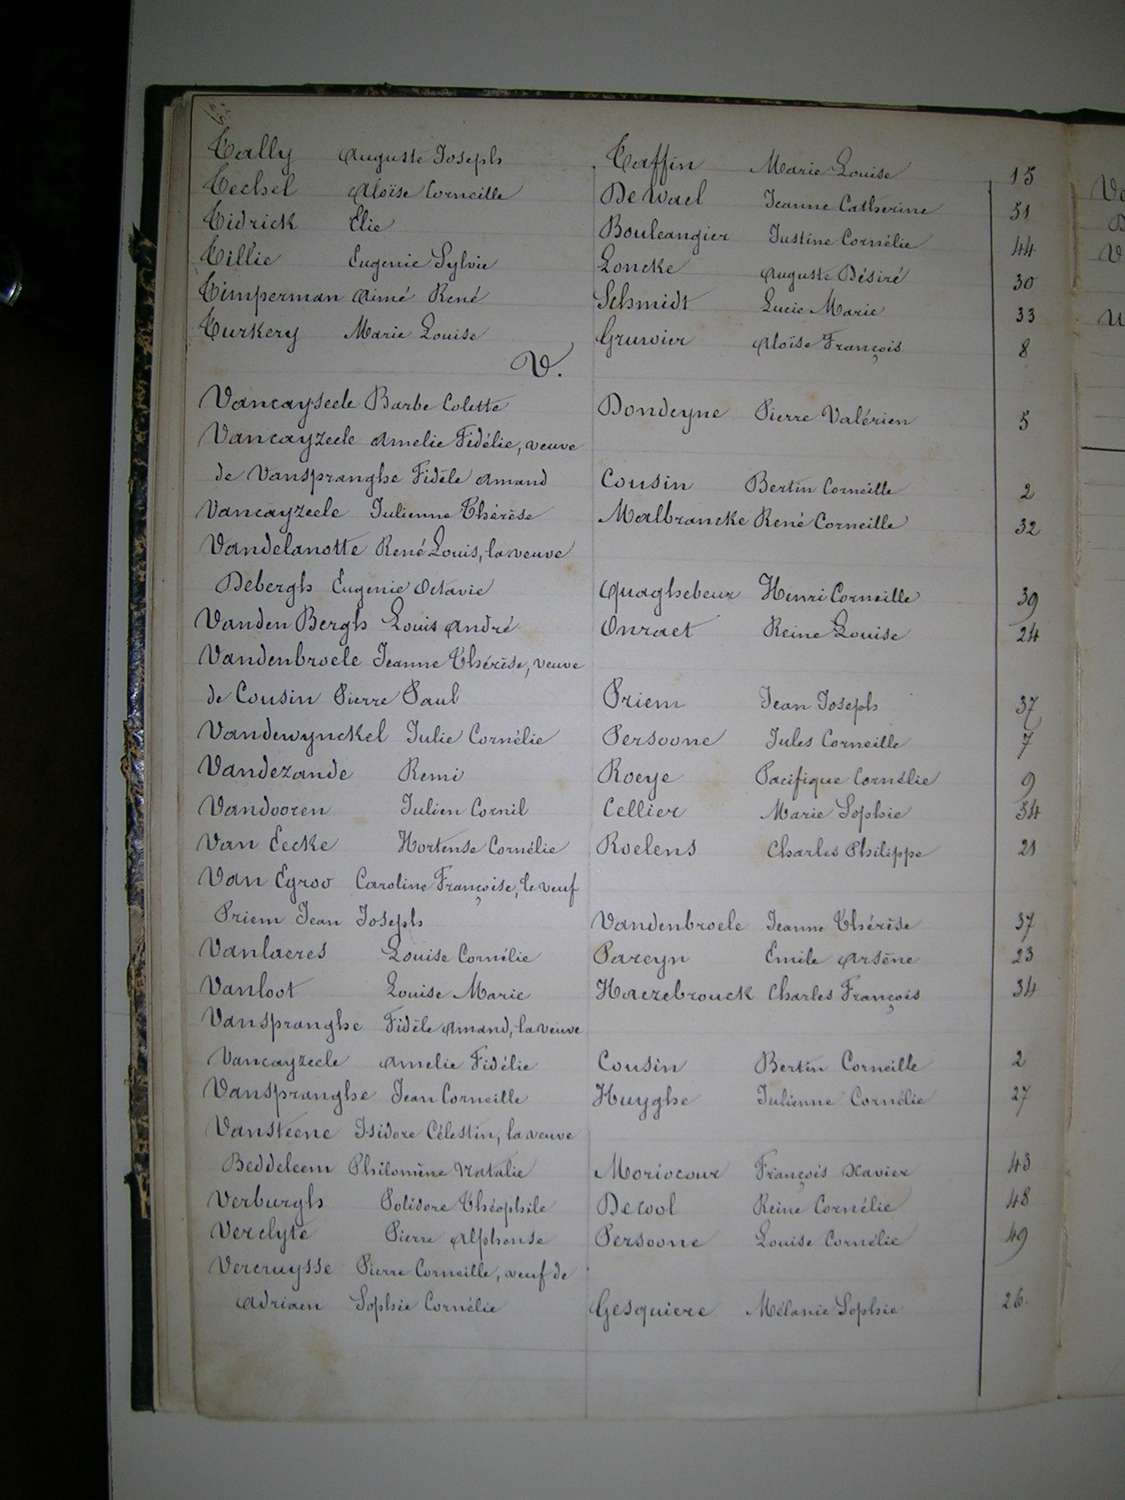 Tally Auguste Joseph Taffin Marie Louise 15
Techel Aloïse Corneille De Wael Jeanne Catherine 51
Tidrick Elie Bouleangier Justine Cornélie 44
Tillie Eugenie Sylvie Loncke Auguste Désiré 30
Timperman Aimé René Schmidt Lucie Marie 33
Turkery Marie Louise Gruwier Aloïse François 8
V.
Vancayseele Barbe Colette Dondeyne Pierre Valérien 5
Vancayzeele Amelie Fidélie, veuve
de Vanspranghe Fidèle Amand Cousin Bertin Corneille 2
Vancayzeele Julienne Thérèse Malbrancke René Corneille 32
Vandelanotte René Louis, la veuve
Debergh Eugenie Octavie Quaghebeur Henri Corneille 39
Vanden Bergh Louis André Onraet Reine Louise 24
Vandenbroele Jeanne Thérèse, veuve
de Cousin Pierre Paul Priem Jean Joseph 37
Vandewynckel Julie Cornélie Persoone Jules Corneille 7
Vandezande Remi Roeye Pacifique Cornélie 9
Vandooren Julien Cornil Cellier Marie Sophie 54
Van Eecke Hortense Cornélie Roelens Charles Philippe 21
Van Egroo Caroline Françoise, le veuf
Priem Jean Joseph Vandenbroele Jeanne Thérèse 37
Vanlaeres Louise Cornélie Pareyn Emile Arsène 23
Vanloot Louise Marie Haezebrouck Charles François 34
Vanspranghe Fidèle Amand, la veuve
Vancayzeele Amelie Fidélie Cousin Bertin Corneille 2
Vanspranghe Jean Corneille Huyghe Julienne Cornélie 27
Vansteene Isidore Célestin, la veuve
Beddeleem Philomène Natalie Moriocour François Xavier 43
Verburgh Polidore Théophile Decool Reine Cornélie 48
Verclyte Pierre Alphonse Persoone Louise Cornélie 49
Vercruysse Pierre Corneille, veuf de
Adriaen Sophie Cornélie Gesquiere Mélanie Sophie 26